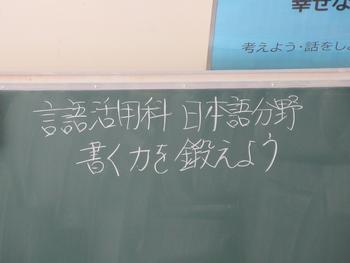 幸せな
考えよう・話をしよ
言語活用科 日本語分野
書く力を鍛えよう